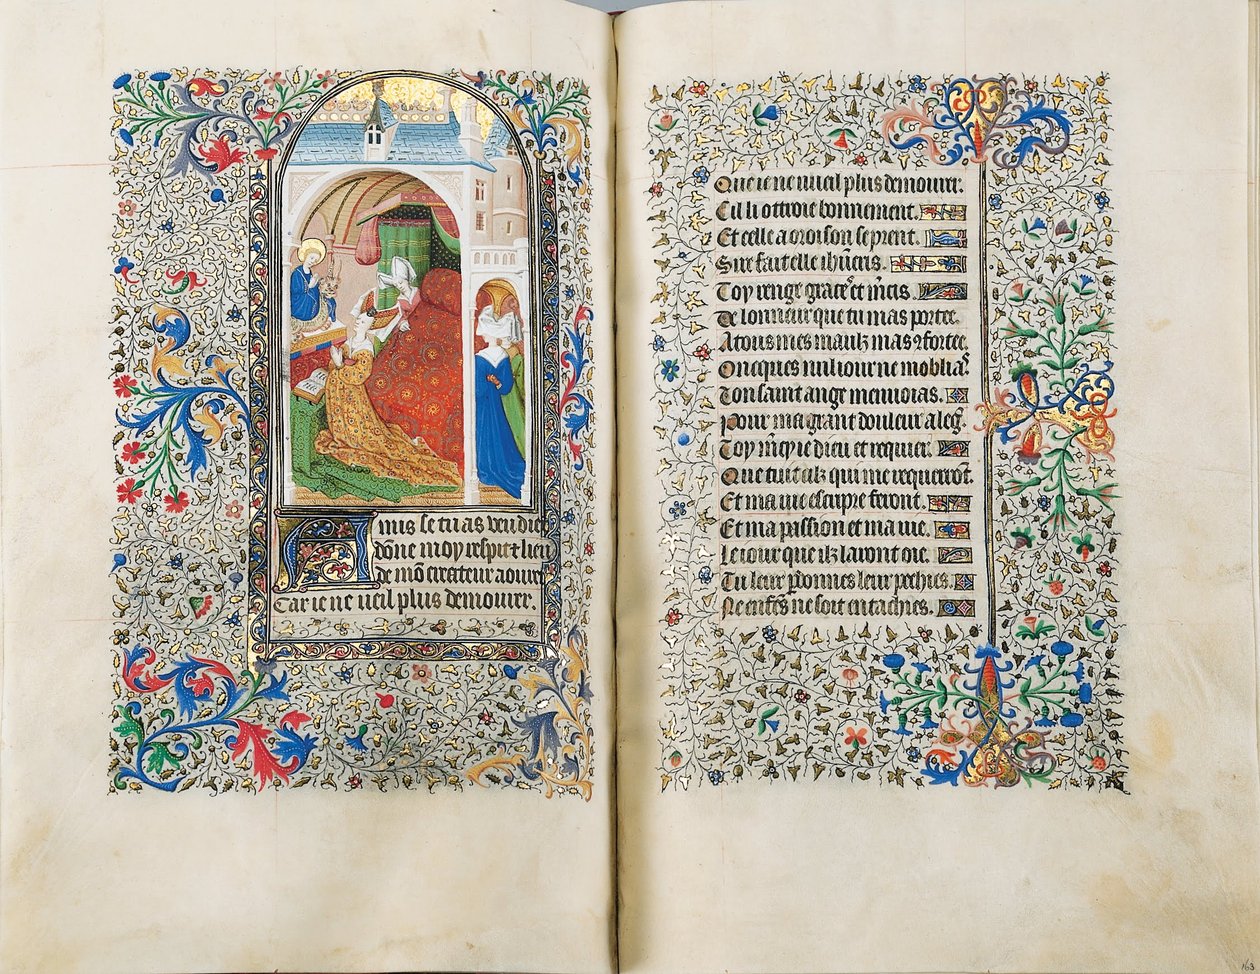 Amis se tu as veu dieu
dōne moy respit & lieu
de mō createur aourer
Car ie ne ueil plus demourer.
Que ie ne ueil plus demourer.
Cil li ottroie bonnement.
Et celle a oroison se prent.
Sire fait elle ihūcris.
Toy renge graces et mercis.
De lonneur que tu mas portee.
A tous mes maulz mas 9fortee.
Onecques nul iour ne moblias.
Ton saint angr menuoias.
Pour ma grant douleur aleg.
Toy mq ye dieu et requier.
Que tui talz qui me requerōt.
Et ma uie escripe feront.
Et ma passion et ma uie.
Le iour que ilz lavont oie.
Tu leur pdonnes leur pechies.
Ne enfēs ne soit entachies.
163